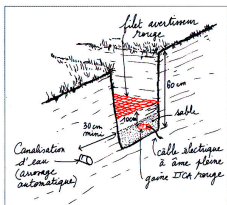 filet avertisseur
rouge
60 cm
10cm
sable
30 cm
mini
Canalisation
d'eau
(arrosage
automatique)
câble électrique
à âme pleine
gaine ICA rouge